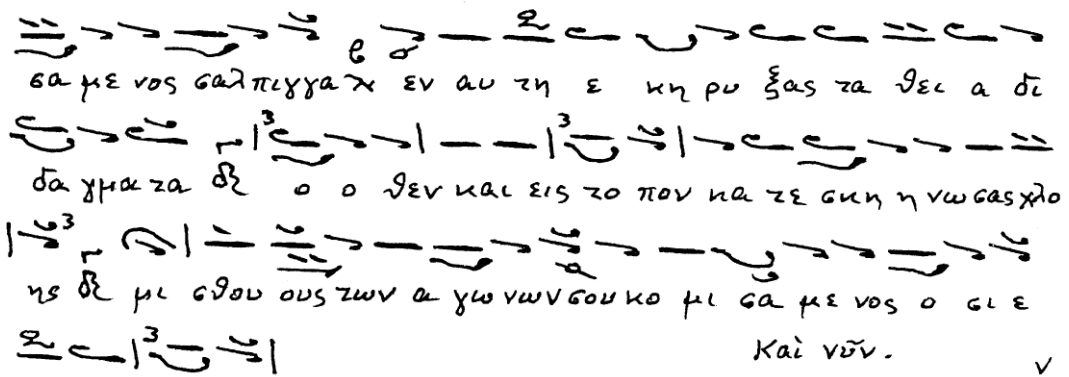 σα με νος σαλπιγγα εν αυ τη ε κη ρυ ξας τα θει α δι
δα γμα τα ο ο θεν και εις το πον κα τε σκη η νω σας χλο
ης μι σθου ους των α γω νων σου κο μι σα με νος ο σι ε
Και νῦν. ν